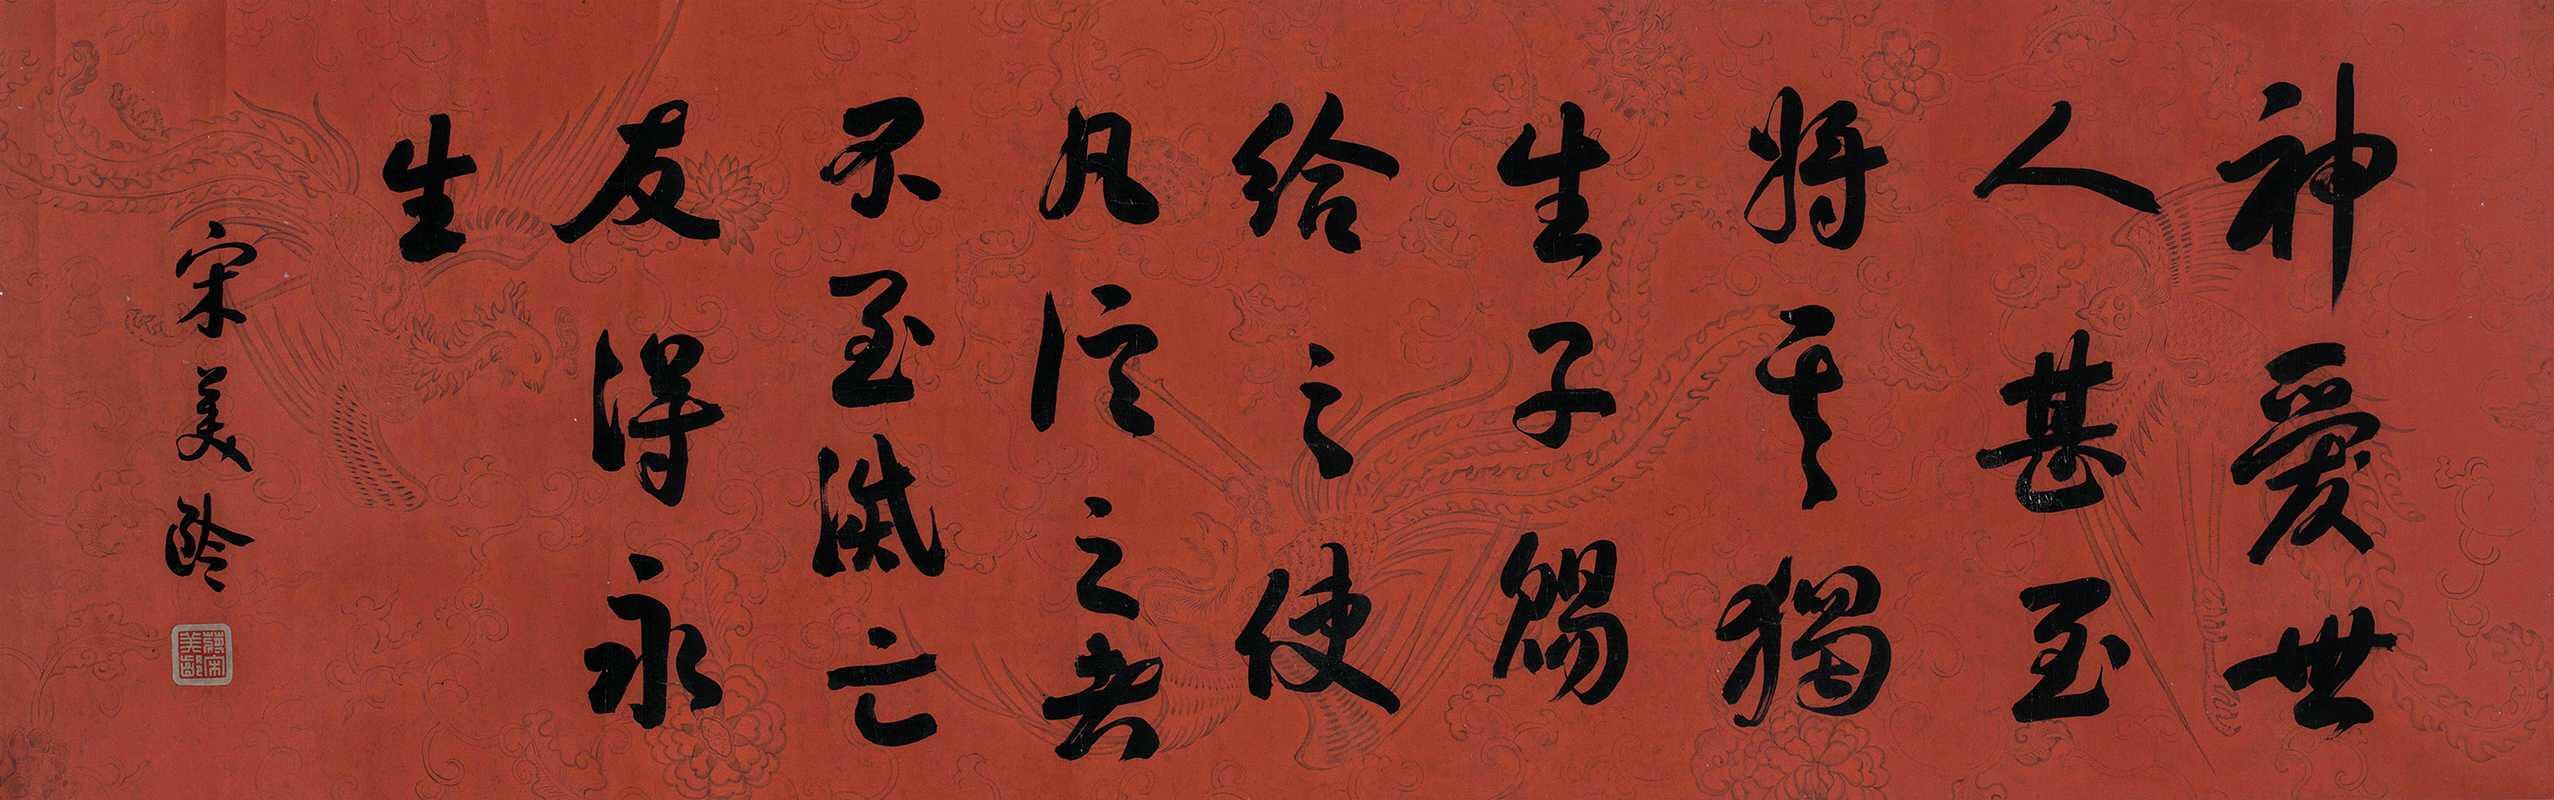 神愛世
人甚至
將其獨
生子賜
給之使
凡信之者
不至滅亡
友得永
生
宋美齡
蔣宋
美齡